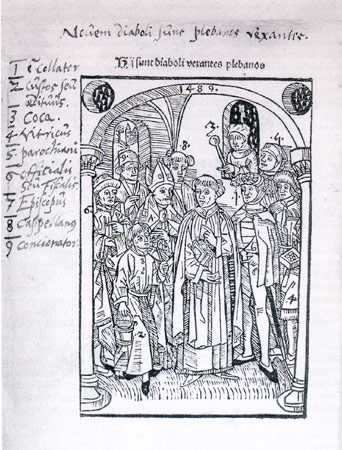 Novem diaboli sunt plebanos vexantes.
Hi sunt diaboli vexantes plebanos
1489.
1 Collator
2 Custos seu
Ædituus.
3 Coca.
4 Vitricus
5 parochiani
6 officialis
seu fiscalis.
7 Episcopus
8 Cappellanus
9 Concionator.
3.
4.
8
6
2